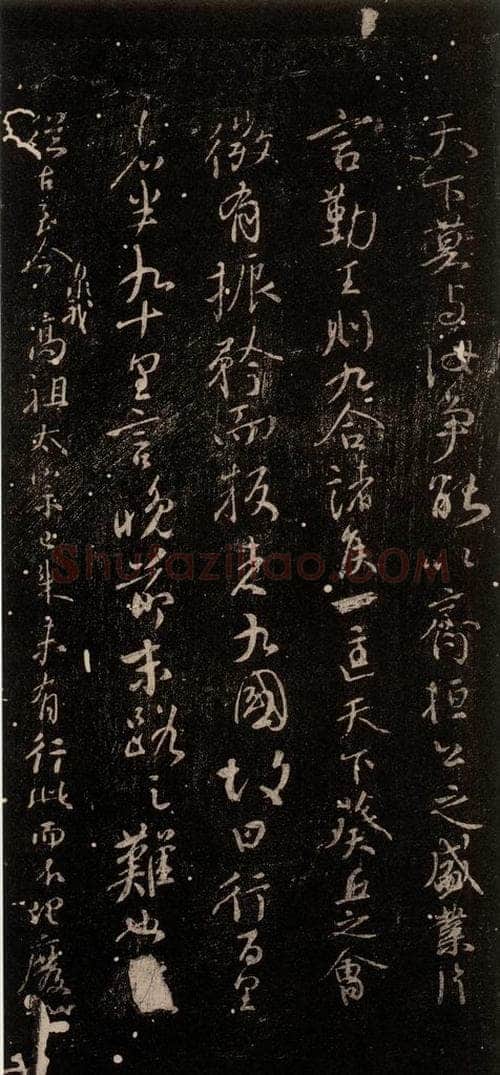 天下莫与汝争能以齊桓公之盛業片
言勤王則九合諸侯一匡天下葵丘之會
微有振矜而叛者九國故曰行百里
者半九十里言晚節末路之難也
從古至今臮我高祖太宗已来未有行此而不理廢
Shufaziliao.COM